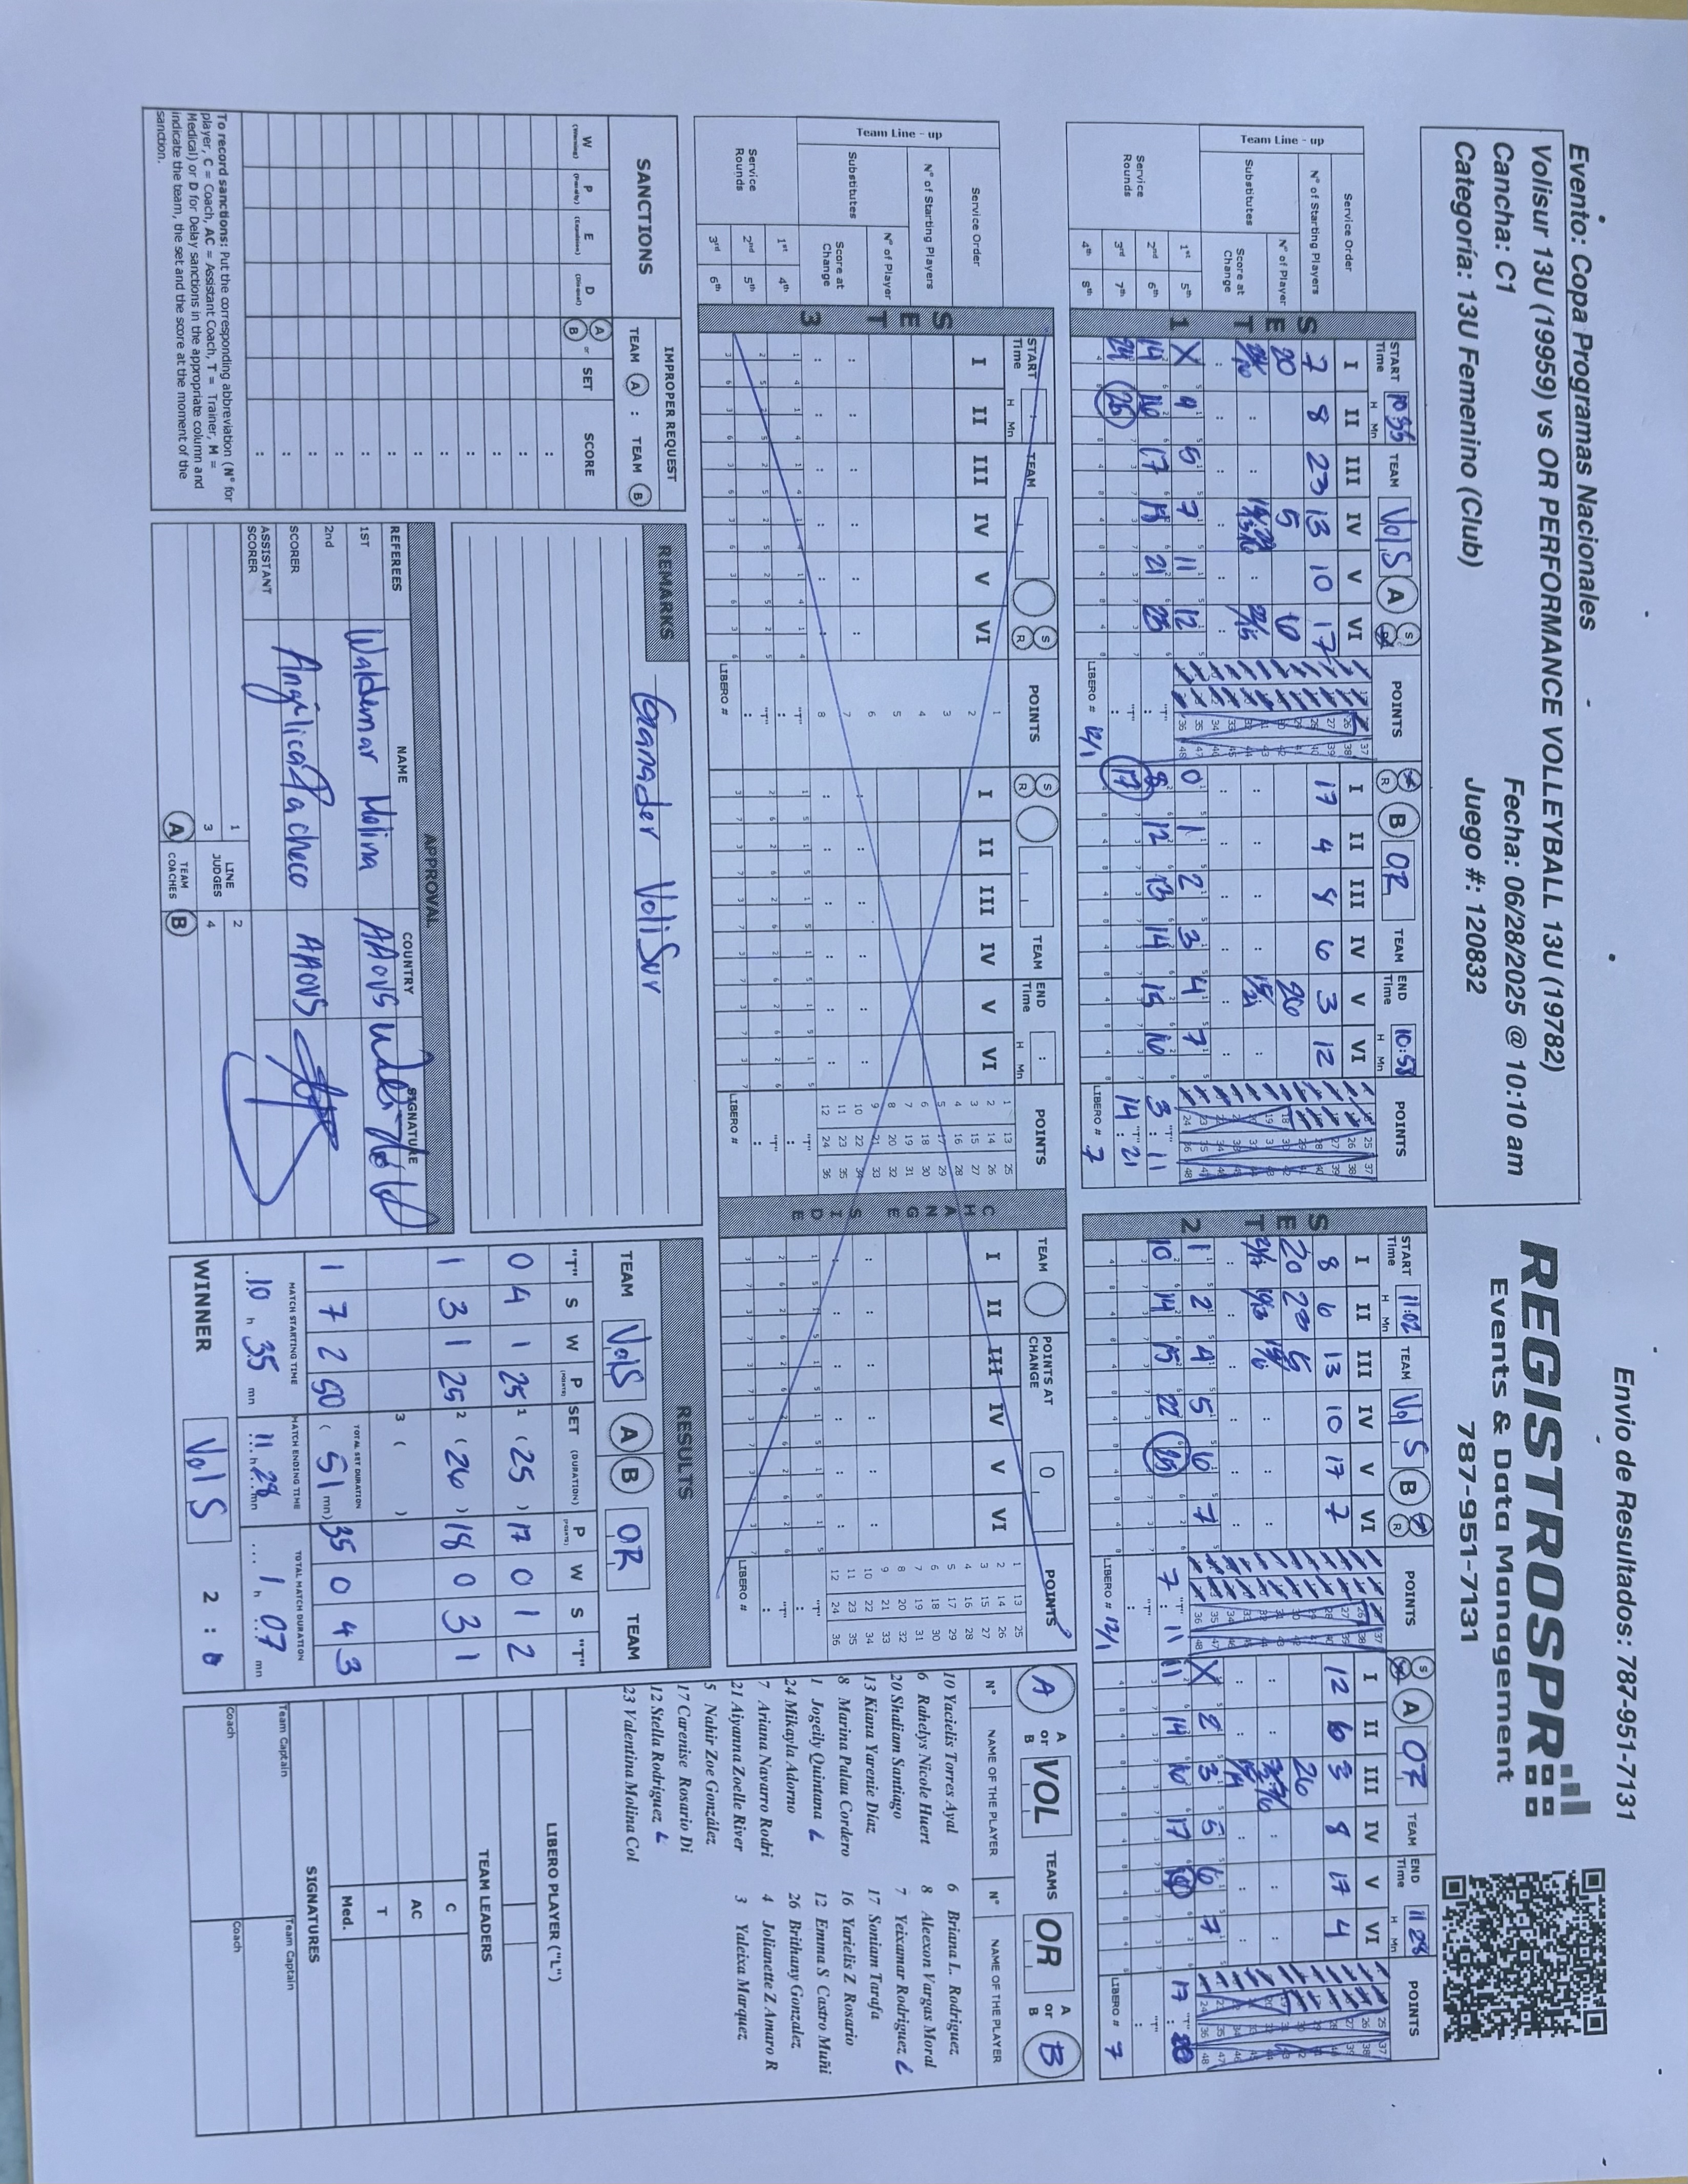 Evento: Copa Programas Nacionales
Volisur 13U (19959) vs OR PERFORMANCE VOLLEYBALL 13U (19782)
Cancha: C1
Fecha: 06/28/2025 @ 10:10 am
Categoría: 13U Femenino (Club)
Juego #: 120832
Envio de Resultados: 787-951-7131
REGISTROSPR
Events & Data Management
787-951-7131
SET 1
START Time 10:35 TEAM Vol S A S R POINTS
S R B OR TEAM END Time 10:58 POINTS
Team Line - up
Service Order I II III IV V VI
N° of Starting Players 7 8 23 13 10 17
17 4 8 6 3 12
Substitutes
N° of Player 20 5 10
20
Score at Change
Service Rounds
1st 5th X 4 5 7 11 12
0 1 2 3 4 7
2nd 6th 14 16 17 18 21 23
8 12 13 14 15 16
3rd 7th 24 25
17
4th 8th
"T" 3 : 11
"T" 14 : 21
LIBERO # 12/1
LIBERO # 7
SET 2
START Time 11:02 TEAM Vol S B S R POINTS
S R A OR TEAM END Time 11 28 POINTS
I II III IV V VI
8 6 13 10 17 7
12 6 3 8 17 4
20 20 5
26
1 2 4 5 6 7
X 2 3 5 6 7
10 14 15 22 25
11 14 16 17 18
"T" 7 : 11
"T" 17 : 20
LIBERO # 12/1
LIBERO # 7
SET 3
START Time H Mn TEAM S R POINTS
S R TEAM END Time H Mn POINTS
CHANGE SIDE
TEAM POINTS AT CHANGE POINTS
Team Line - up
Service Order I II III IV V VI
N° of Starting Players
Substitutes
N° of Player
Score at Change
Service Rounds
1st 4th
2nd 5th
3rd 6th
LIBERO #
LIBERO #
LIBERO #
SANCTIONS
IMPROPER REQUEST
TEAM A : TEAM B
W (Warning) P (Penalty) E (Expulsion) D (Disqual) A or B SET SCORE
To record sanctions: Put the corresponding abbreviation (N° for
player, C = Coach, AC = Assistant Coach, T = Trainer, M =
Medical) or D for Delay sanctions in the appropriate column and
indicate the team, the set and the score at the moment of the
sanction.
REMARKS
Ganador VoliSur
APPROVAL
REFEREES NAME COUNTRY SIGNATURE
1ST Waldemar Molina AAOVS
2nd
SCORER Angélica Pacheco AAOVS
ASSISTANT SCORER
LINE JUDGES 1 2 3 4
A TEAM COACHES B
RESULTS
TEAM VolS A B OR TEAM
"T" S W P (POINTS) SET (DURATION) P (POINTS) W S "T"
0 4 1 25 1 (25) 17 0 1 2
1 3 1 25 2 (26) 18 0 3 1
3 ( )
1 7 2 50 TOTAL SET DURATION (51 mn) 35 0 4 3
MATCH STARTING TIME 10 h 35 mn
MATCH ENDING TIME 11 h 28 mn
TOTAL MATCH DURATION 1 h 07 mn
WINNER Vol S 2 : 0
A A or B VOL TEAMS OR A or B B
N° NAME OF THE PLAYER N° NAME OF THE PLAYER
10 Yacielis Torres Ayal
6 Rahelys Nicole Huert
20 Shaliam Santiago
13 Kiana Yarenie Díaz
8 Mariina Palau Cordero
1 Jogeily Quintana L
24 Mikayla Adorno
7 Ariana Navarro Rodri
21 Aiyanna Zoelle River
5 Nahir Zoe González
17 Carenise Rosario Di
12 Stella Rodríguez L
23 Valentina Molina Col
6 Briana L. Rodriguez
8 Aleexon Vargas Moral
7 Yeixamar Rodriguez L
17 Soniam Tarafa
16 Yarielis Z Rosario
12 Emma S Castro Muñi
26 Brithany Gonzalez
4 Jolianette Z Amaro R
3 Yaleixa Marquez
LIBERO PLAYER ("L")
TEAM LEADERS
C
AC
T
Med.
SIGNATURES
Team Captain Team Captain
Coach Coach